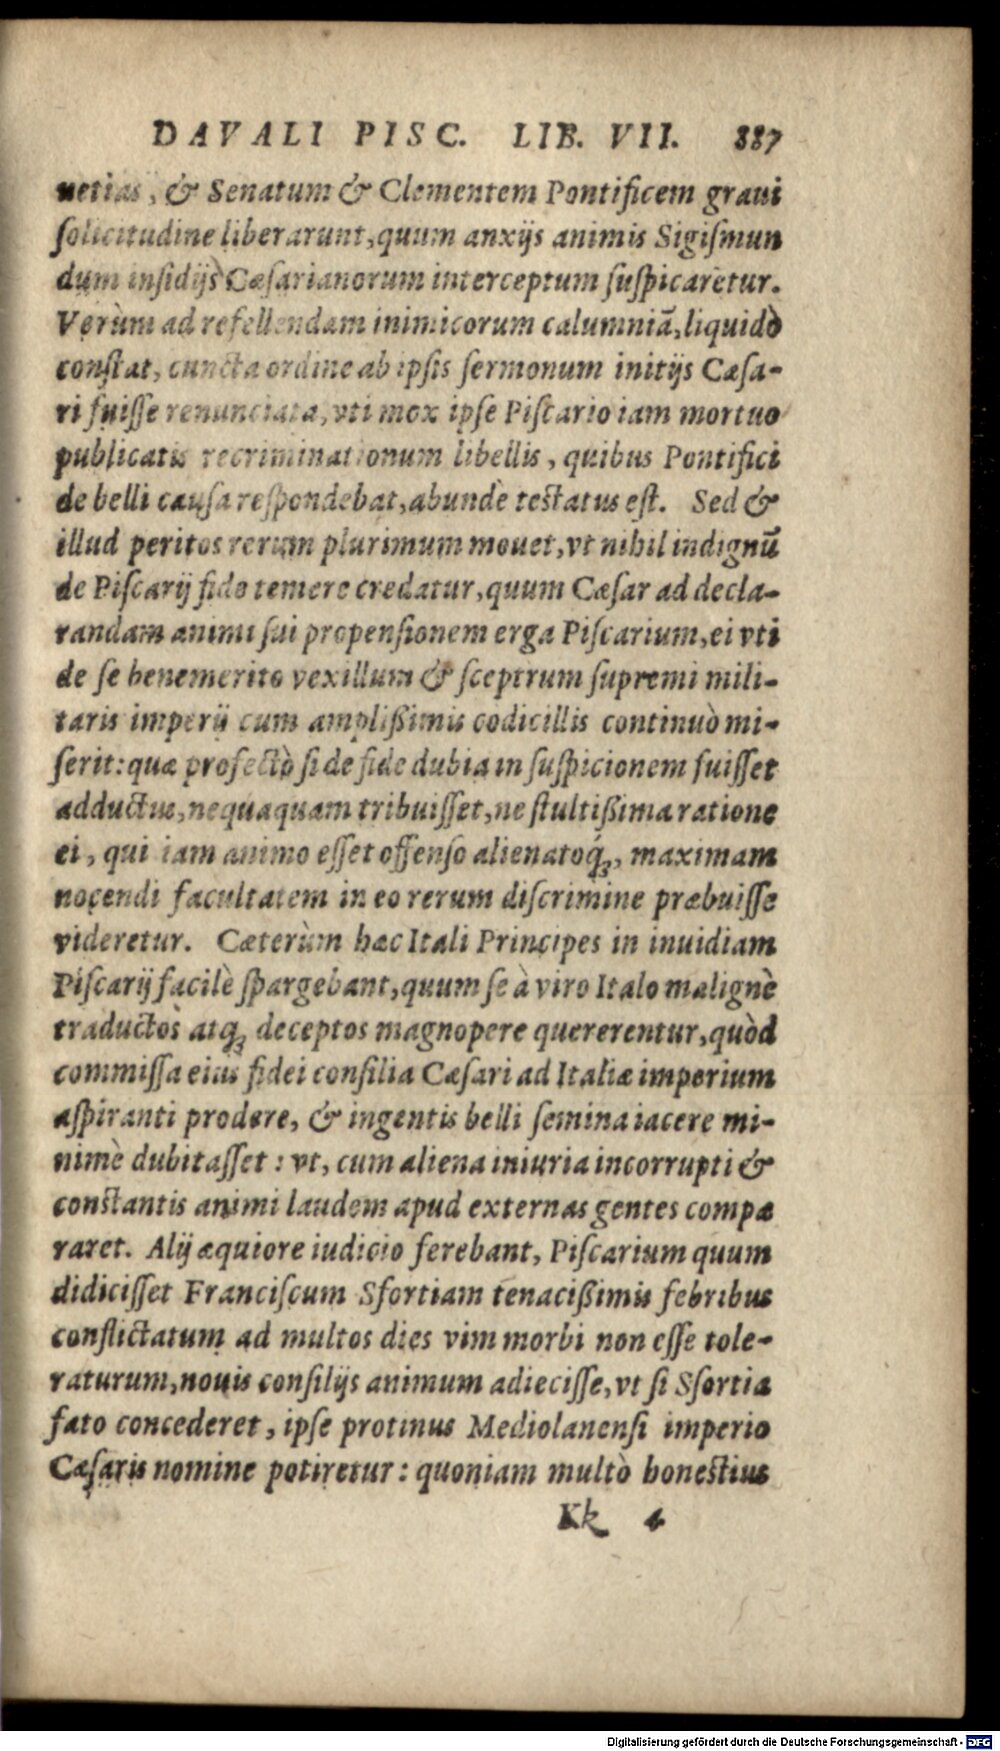 DAVALI PISC. LIB. VII. 887
uetias, & Senatum & Clementem Pontificem graui
ſolicitudine liberarunt, quum anxijs animis Sigiſmun
dum inſidijs Cæſarianorum interceptum ſuſpicaretur.
Verùm ad refellendam inimicorum calumniã, liquidò
conſtat, cuncta ordine ab ipſis ſermonum initijs Cæſa-
ri fuiſſe renunciata, vti mox ipſe Piſcario iam mortuo
publicatis recriminationum libellis, quibus Pontifici
de belli cauſa reſpondebat, abundè teſtatus eſt. Sed &
illud peritos rerum plurimum mouet, vt nihil indignũ
de Piſcarij fide temere credatur, quum Cæſar ad decla-
randam animi ſui propenſionem erga Piſcarium, ei vti
de ſe benemerito vexillum & ſceptrum ſupremi mili-
taris imperij cum ampliſſimis codicillis continuò mi-
ſerit: quæ profectò ſi de fide dubia in ſuſpicionem fuiſſet
adductus, nequaquam tribuiſſet, ne ſtultiſſima ratione
ei, qui iam animo eſſet offenſo alienatoq́;, maximam
nocendi facultatem in eo rerum diſcrimine præbuiſſe
videretur. Cæterùm hæc Itali Principes in inuidiam
Piſcarij facilè ſpargebant, quum ſe à viro Italo malignè
traductos atq; deceptos magnopere quererentur, quòd
commiſſa eius fidei conſilia Cæſari ad Italiæ imperium
aſpiranti prodere, & ingentis belli ſemina iacere mi-
nimè dubitaſſet: vt, cum aliena iniuria incorrupti &
conſtantis animi laudem apud externas gentes compa
raret. Alij æquiore iudicio ferebant, Piſcarium quum
didiciſſet Franciſcum Sfortiam tenaciſſimis febribus
conflictatum ad multos dies vim morbi non eſſe tole-
raturum, nouis conſilijs animum adieciſſe, vt ſi Sfortia
fato concederet, ipſe protinus Mediolanenſi imperio
Cæſaris nomine potiretur: quoniam multò honeſtius
Kk 4
Digitalisierung gefördert durch die Deutsche Forschungsgemeinschaft - DFG